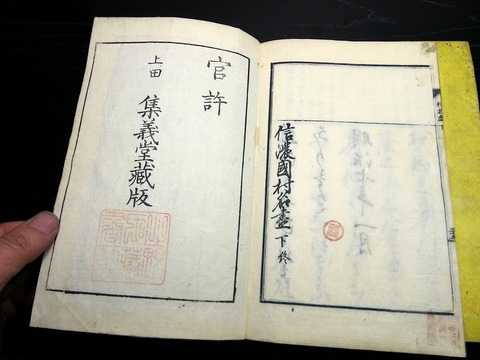 信濃國村名盡 下終
官許
上田 集義堂藏版